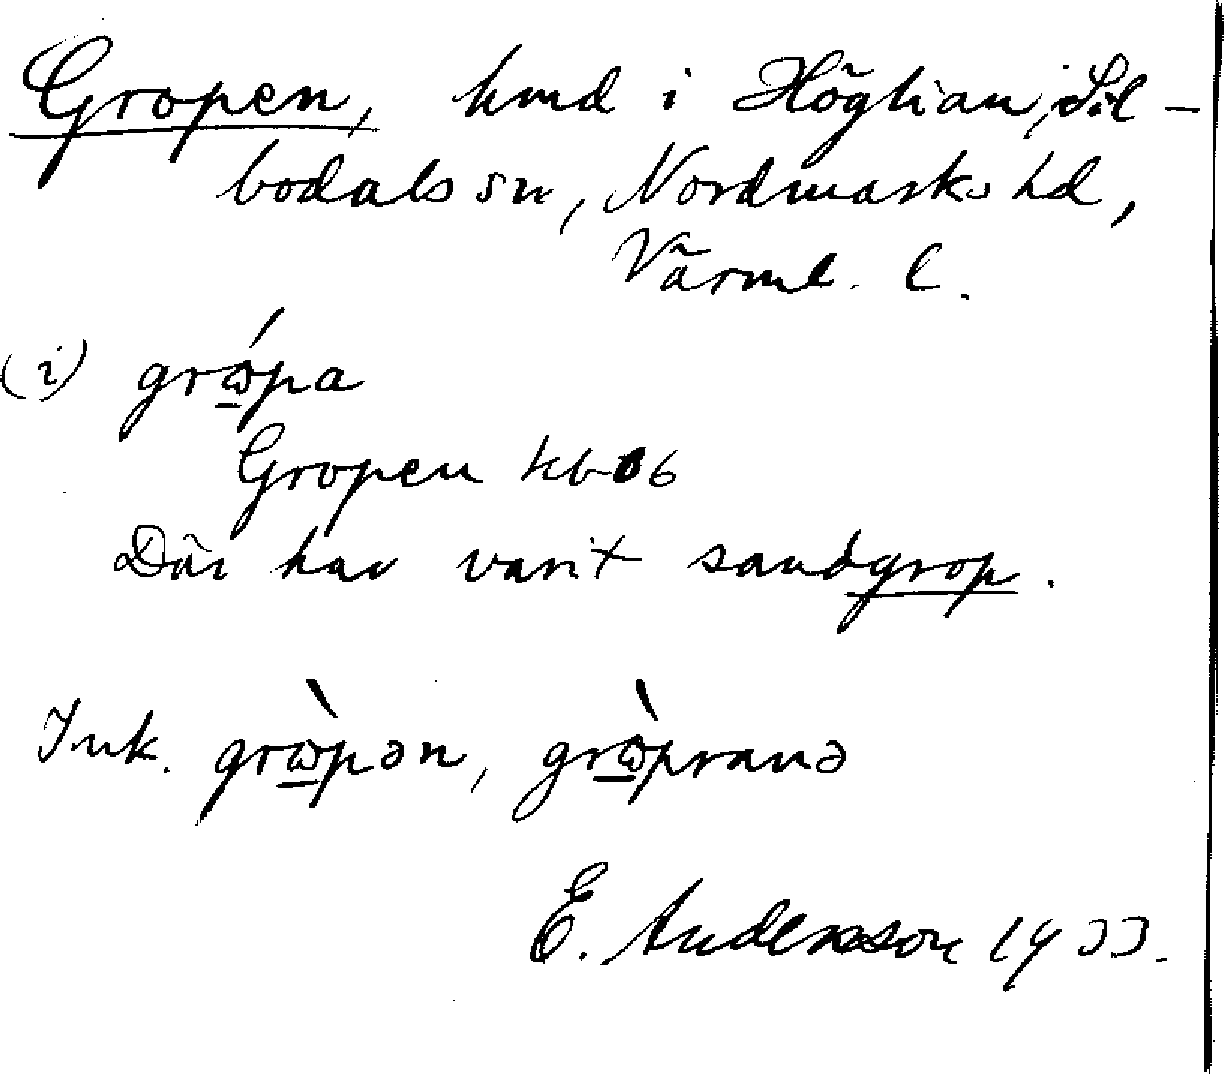 Gropen, hmd i Höglian, Sil-
bodals sn, Nordmarks hd,
Värml. l.
(i) grώ̲pa
Gropen kb 06
Där har varit sandgrop.
Ink. grὼ̲pən, grὼ̲pranə
E. Andersson 1933.